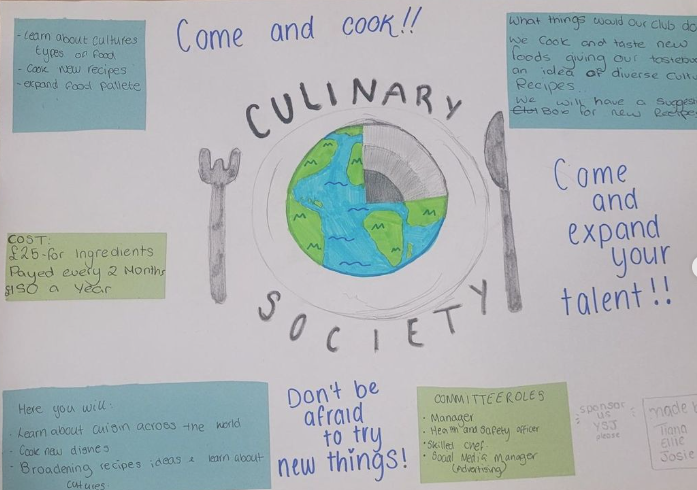 - Learn about cultures
types of food
- Cook new recipes
- expand food pallete
Come and cook!!
What things would our club do
We cook and taste new
foods giving our
an idea of diverse
Recipes.
We will have a
Box for new
CULINARY
SOCIETY
Come
and
expand
your
talent!!
COST:
£25-for Ingredients
Payed every 2 Months
£150 a Year
Here you will:
- Learn about cuisin across the world
- Cook new dishes
- Broadening recipes ideas & learn about
cultures.
Don't be
afraid
to try
new things!
COMMITTEE ROLES
- Manager
- Health and Safety officer
- Skilled chef
- Social Media Manager
(Advertising)
sponsor
us
YSJ
please
made
Tiana
Ellie
Josie